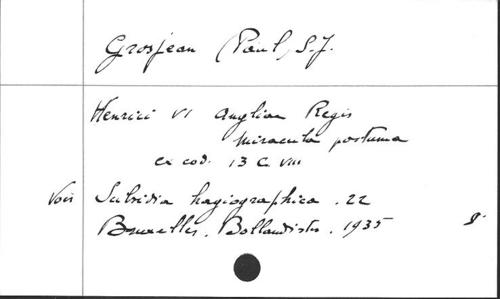 Grosjean (Paul, S.J.
Henrici VI Angliae Regis
Miracula postuma
ex cod. 13 C. VIII
Voir Subsidia hagiographica. 22
Bruxelles. Bollandistes. 1935